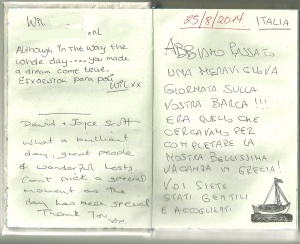 Wil
Although in the way the
whole day.... you made
a dream come true.
Efxoristw para poli
Wil xx
David + Joyce Scott
What a brilliant
day, great people
& wonderful hosts
Can't pick a special
moment as the
day has been special
Thank You
25/8/2014 ITALIA
ABBIAMO PASSATO
UNA MERAVIGLIOSA
GIORNATA SULLA
VOSTRA BARCA!!!
ERA QUELLO CHE
CERCAVAMO PER
COMPLETARE LA
NOSTRA BELLISSIMA
VACANZA IN GRECIA!
VOI SIETE
STATI GENTILI
E ACCOGLIENTI